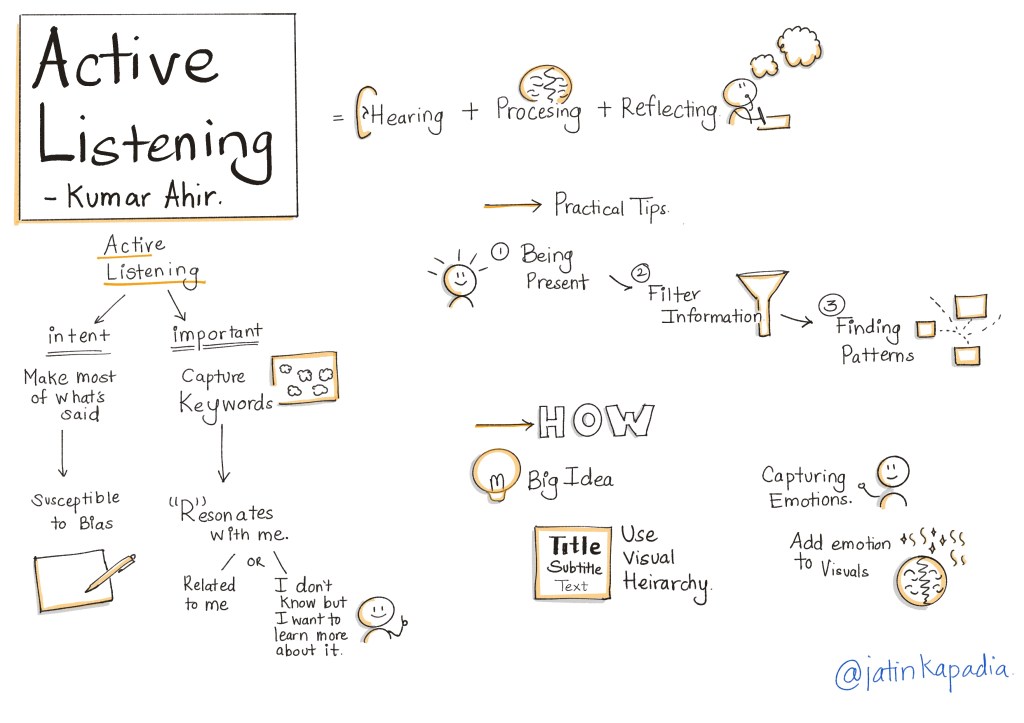 Active
Listening
- Kumar Ahir.
= Hearing + Procesing + Reflecting.
Active
Listening
intent
Make most
of what's
said
Susceptible
to Bias
important
Capture
Keywords
"R"esonates
with me.
OR
Related
to me
I don't
know but
I want to
learn more
about it.
Practical Tips.
1 Being
Present
2 Filter
Information
3 Finding
Patterns
HOW
Big Idea
Title
Subtitle
Text
Use
Visual
Heirarchy.
Capturing
Emotions.
Add emotion
to Visuals
@jatinkapadia.